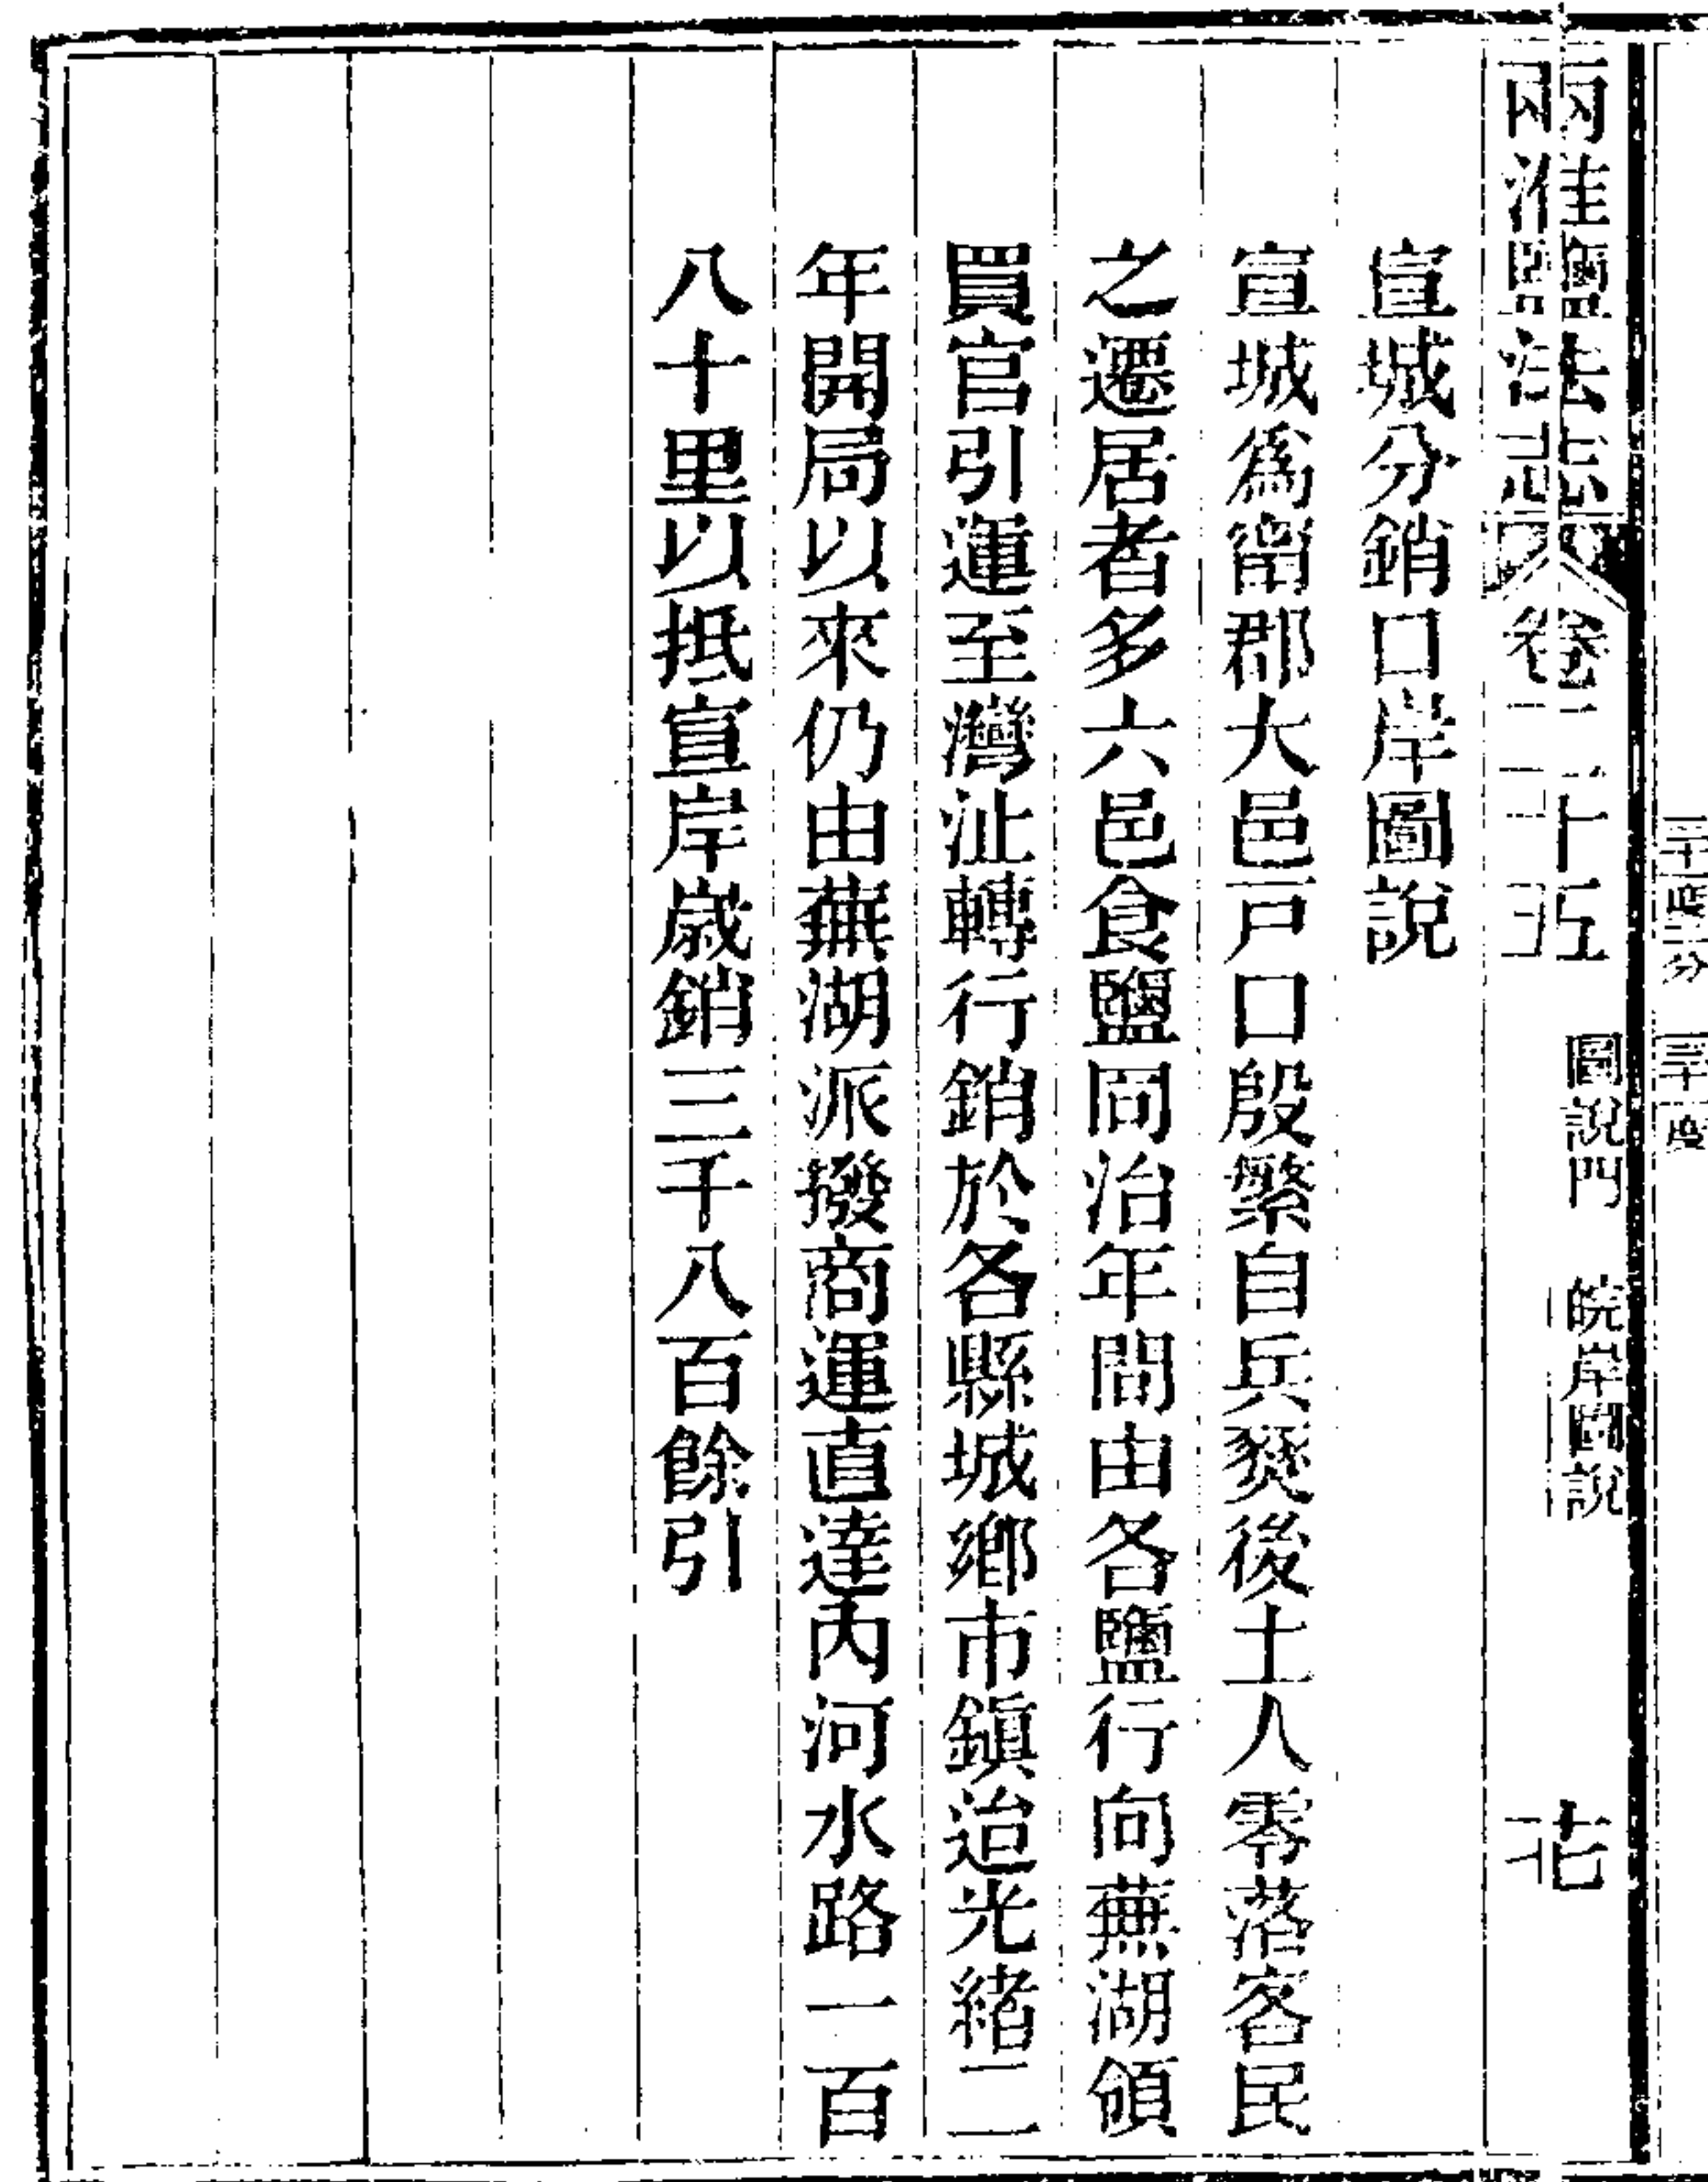 兩淮鹽法志 卷二十五 圖說門 皖岸圖說
宣城分銷口岸圖說
宣城爲甯郡大邑戸口殷繁自兵燹後土人零落客民
之遷居者多六邑食鹽同治年間由各鹽行向蕪湖領
買官引運至灣沚轉行銷於各縣城鄉市鎭迨光緖二
年開局以來仍由蕪湖派撥商運直達內河水路一百
八十里以抵宣岸嵗銷三千八百餘引